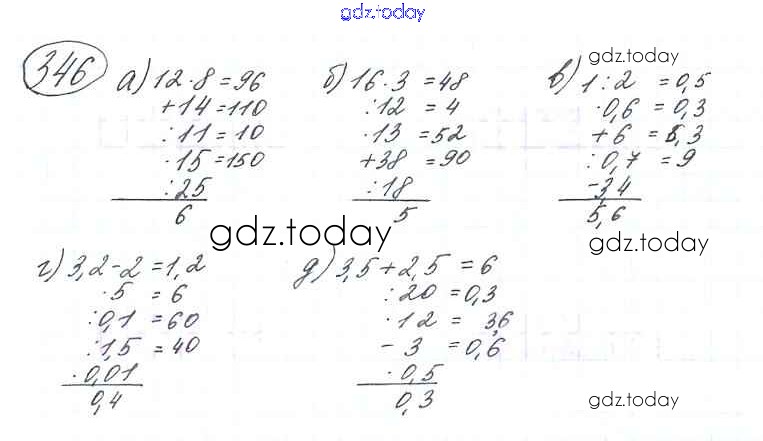 gdz.today
346
а) 12·8=96
+14=110
:11=10
·15=150
:25
6
б) 16·3=48
:12=4
·13=52
+38=90
:18
5
gdz.today
в) 1:2=0,5
·0,6=0,3
+6=6,3
:0,7=9
-3,4
5,6
gdz.today
gdz.today
г) 3,2-2=1,2
·5=6
:0,1=60
:1,5=40
·0,01
0,4
д) 3,5+2,5=6
:20=0,3
·12=3,6
-3=0,6
·0,5
0,3
gdz.today